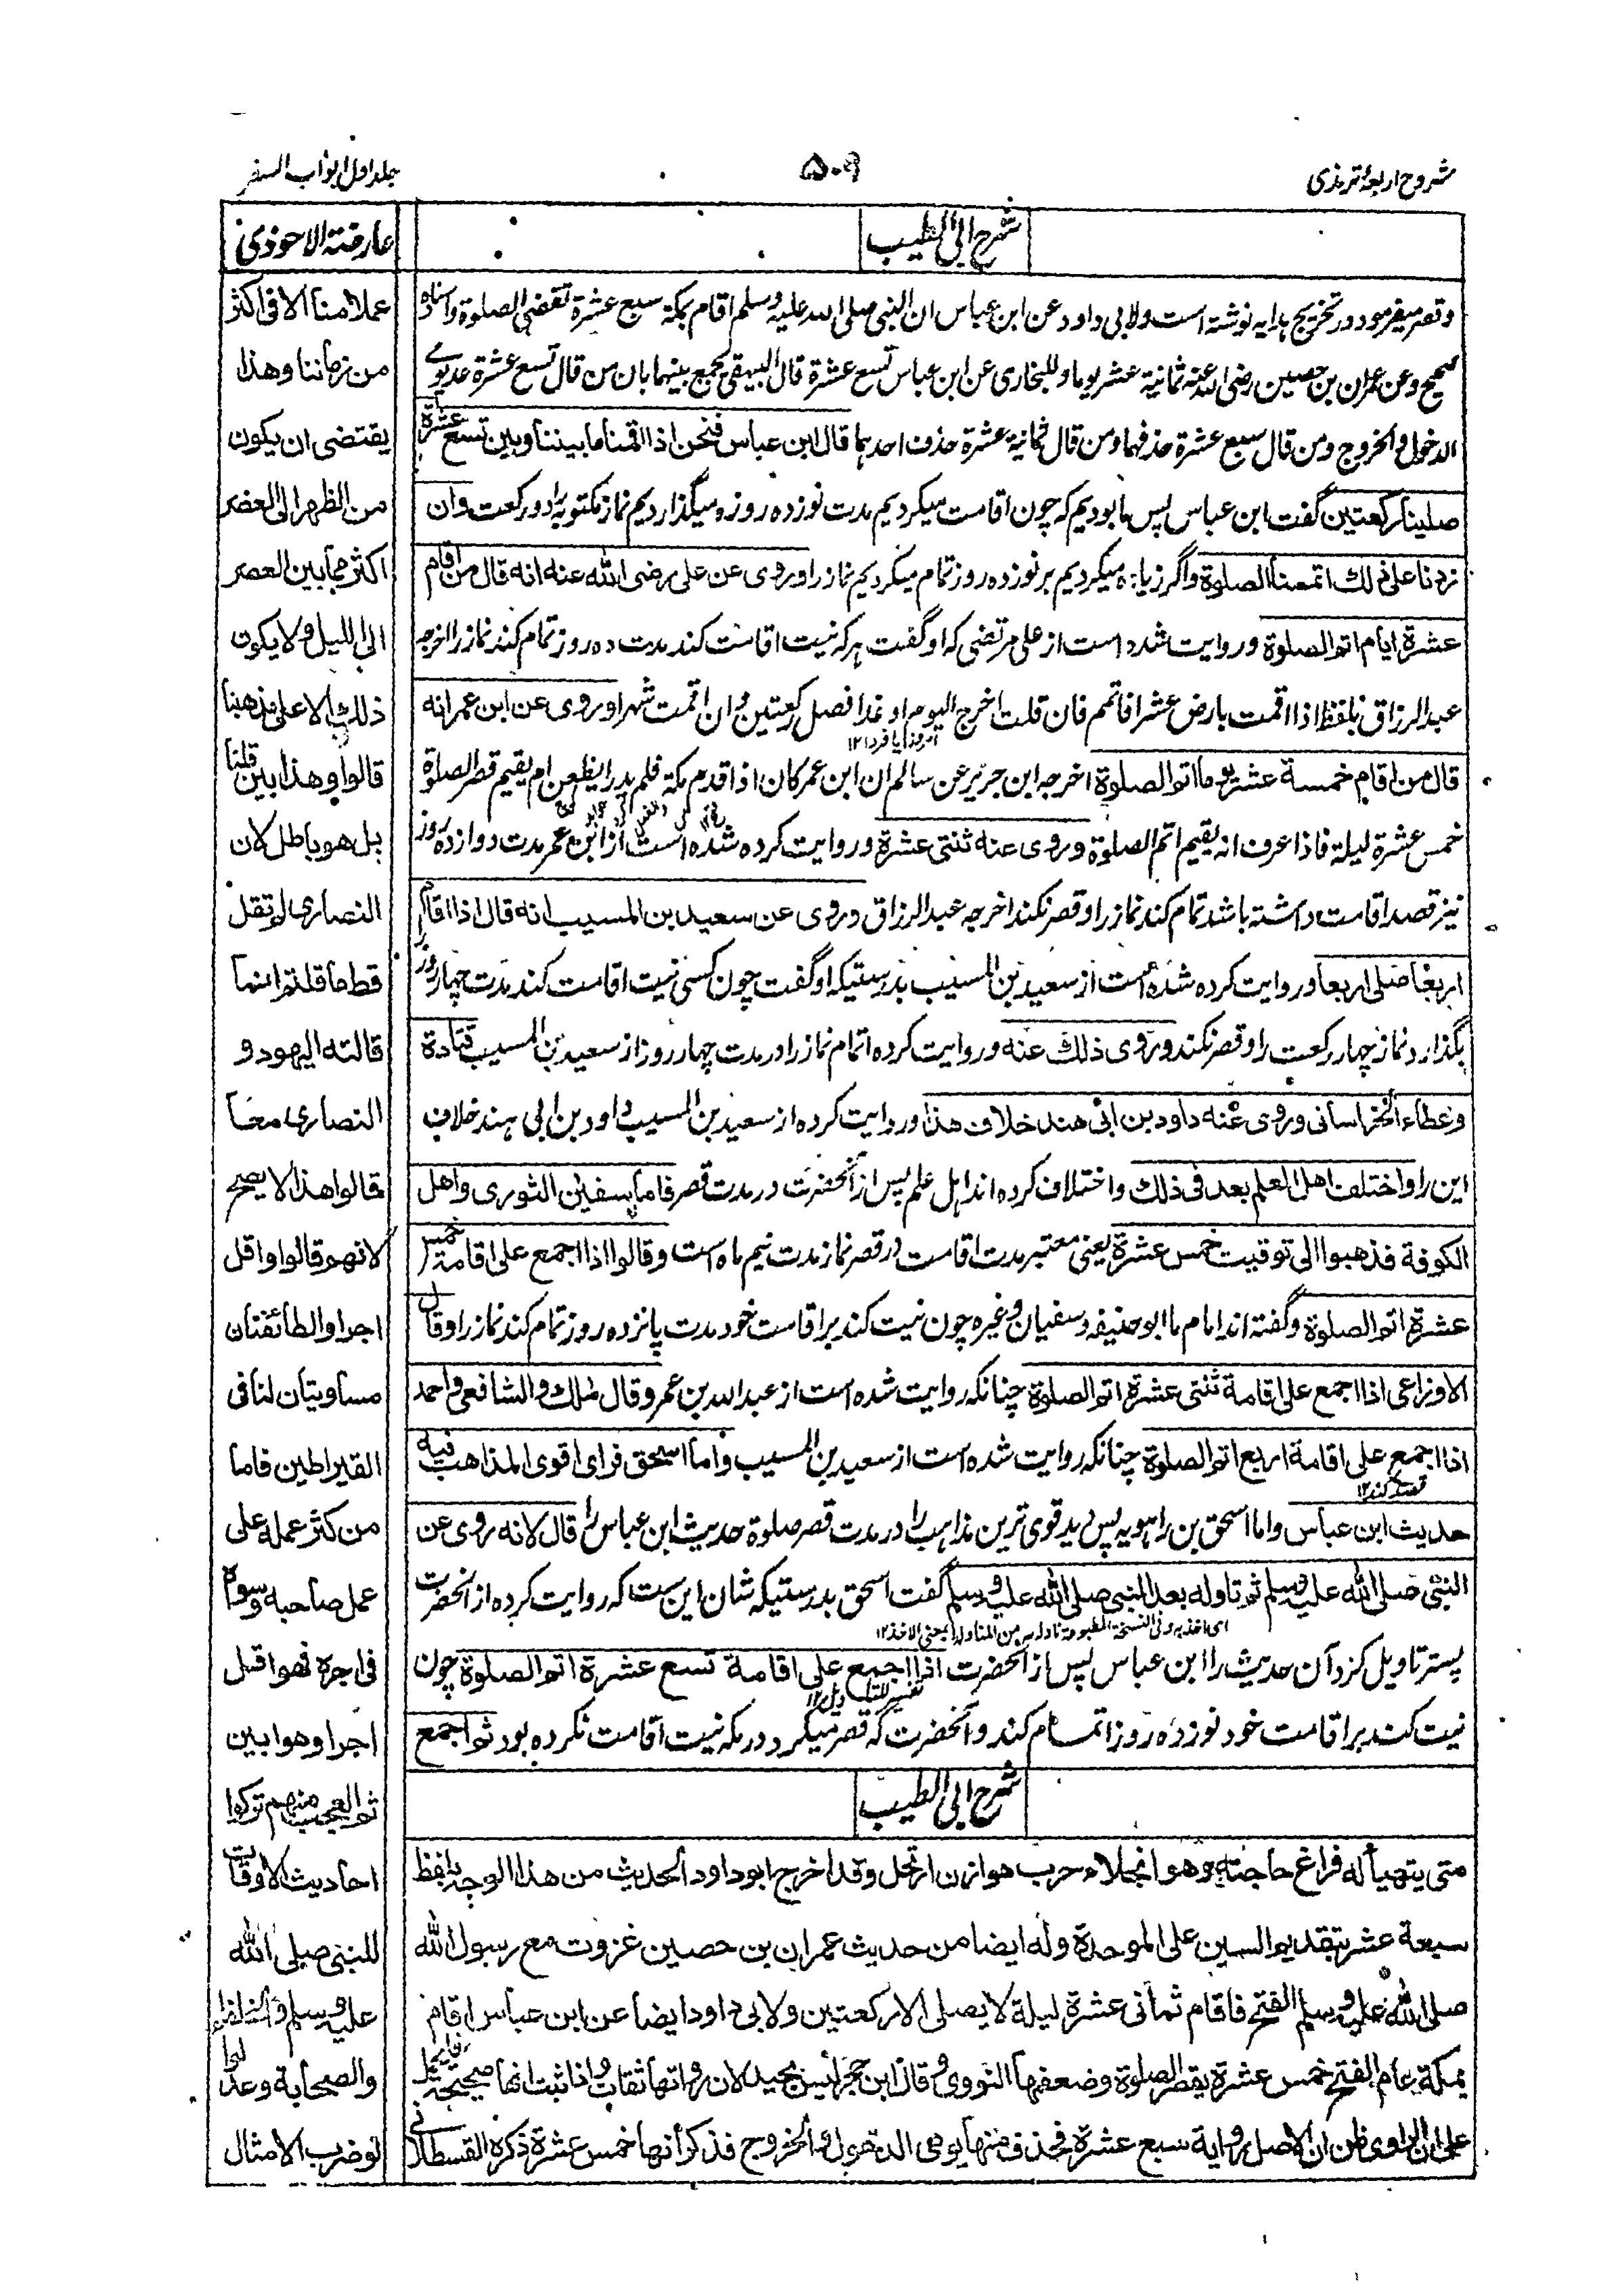 شروح اربعهٔ ترمذی
۵۰۹
جلد اول ابواب السفر
شرح ابی الطیب
وقصر میفرمود و در تخریج هدایه نوشته است ولابی داود عن ابن عباس ان النبی صلی الله علیه وسلم اقام بمکة سبع عشرة تقضی الصلوة واسناده
صحیح وعن عمران بن حصین رضی الله عنه ثمانیة عشر یوما وللبخاری عن ابن عباس تسع عشرة قال البیهقی یجمع بینهما بان من قال تسع عشرة عد یومے
الدخول والخروج ومن قال سبع عشرة حذفهما ومن قال ثمانیة عشرة حذف احدهما قال ابن عباس فنحن اذا اقمنا ما بیننا وبین تسع عشرة
صلینا رکعتین گفت ابن عباس پس ما بودیم که چون اقامت میکردیم مدت نوزده روزه میگذاردیم نماز مکتوبه را دو رکعت وان
زدنا علی ذلك اتممنا الصلوة واگر زیاده میکردیم بر نوزده روز تمام میکردیم نماز را وروی عن علی رضی الله عنه انه قال من اقام
عشرة ایام اتم الصلوة و روایت شده است از علی مرتضی که او گفت هر که نیت اقامت کند مدت ده روز تمام کند نماز را اخرجه
عبد الرزاق بلفظ اذا اقمت بارض عشرا فاتمم فان قلت اخرج الیوم او غدا فصل رکعتین وان اقمت شهرا وروی عن ابن عمر انه
امروز یا فردا ۱۲
قال من اقام خمسة عشر یوما اتم الصلوة اخرجه ابن جریر عن سالم ان ابن عمر کان اذا قدم مکة فلم یدر ایظعن ام یقیم قصر الصلوة
خمس عشرة لیلة فاذا عرف انه یقیم اتم الصلوة وروی عنه ثنتی عشرة و روایت کرده شده است از ابن عمر مدت دوازده روز
نیز قصد اقامت داشته باشد تمام کند نماز را و قصر نکند اخرجه عبد الرزاق وروی عن سعید بن المسیب انه قال اذا اقام
اربعا صلی اربعا و روایت کرده شده است از سعید بن المسیب بدرستیکه او گفت چون کسی نیت اقامت کند مدت چهار روز
بگذارد نماز چهار رکعت را و قصر نکند وروی ذلك عنه و روایت کرده اتمام نماز را در مدت چهار روز از سعید بن المسیب قتادة
وعطاء الخراسانی وروی عنه داود بن ابی هند خلاف هذا و روایت کرده از سعید بن المسیب داود بن ابی هند خلاف
این را واختلف اهل العلم بعد فی ذلك واختلاف کرده اند اهل علم پس از آنحضرت در مدت قصر فاما سفین الثوری واهل
الکوفة فذهبوا الی توقیت خمس عشرة یعنی معتبر مدت اقامت در قصر نماز مدت نیم ماه است وقالوا اذا اجمع علی اقامة خمس
عشرة اتم الصلوة وگفته اند امام ما ابو حنیفه و سفیان وغیره چون نیت کند بر اقامت خود مدت پانزده روز تمام کند نماز را وقال
الاوزاعی اذا اجمع علی اقامة ثنتی عشرة اتم الصلوة چنانکه روایت شده است از عبد الله بن عمر وقال ملك والشافعی واحمد
اذا اجمع علی اقامة اربع اتم الصلوة چنانکه روایت شده است از سعید بن المسیب واما اسحق فرای اقوی المذاهب فیه
قصد کند ۱۲
حدیث ابن عباس واما اسحق بن راهویه پس دید قوی ترین مذاهب را در مدت قصر صلوة حدیث ابن عباس را قال لانه روی عن
النبی صلی الله علیه وسلم ثم تاوله بعد النبی صلی الله علیه وسلم گفت اسحق بدرستیکه شان این ست که روایت کرده از آنحضرت
ای اخذ به وفی النسخة المطبوعة ناوله من المناولة بمعنی الاخذ ۱۲
پستر تاویل کرد آن حدیث را ابن عباس پس از آنحضرت اذا اجمع علی اقامة تسع عشرة اتم الصلوة چون
تفسیر للتاویل ۱۲
نیت کند بر اقامت خود نوزده روز اتمام کند و آنحضرت که قصر میکرد در مکه نیت اقامت نکرده بود ثم اجمع
شرح ابی الطیب
متی یتهیأ له فراغ حاجته وهو انجلاء حرب هوازن ارتحل وقد اخرج ابوداود الحدیث من هذا الوجه بلفظ
سبعة عشر بتقدیم السین علی الموحدة وله ایضا من حدیث عمران بن حصین غزوت مع رسول الله
صلی الله علیه وسلم الفتح فاقام ثمانی عشرة لیلة لا یصلی الا رکعتین ولابی داود ایضا عن ابن عباس اقام
بمکة عام الفتح خمس عشرة یقصر الصلوة وضعفها النووی وقال ابن حجر لیس بجید لان رواتها ثقات واذا ثبت انها صحیحة فلیحمل
علی ان الراوی ظن ان الاصل روایة سبع عشرة فحذف منها یومی الدخول والخروج فذکر أنها خمس عشرة ذکره القسطلانی
عارضة الاحوذی
عملا منا الا فی اکثر
من زماننا وهذا
یقتضی ان یکون
من الظهر الی العصر
اکثر مما بین العصر
الی اللیل ولا یکون
ذلك الا علی مذهبنا
قالوا وهذا بین قلنا
بل هو باطل لان
النصاری لم تقل
قط ما قلتم انما
قالته الیهود و
النصاری معا
قالوا هذا لا یصح
لانهم قالوا واقل
اجرا والطائفتان
مساویتان لنا فی
القیراطین فاما
من کثر عمله علی
عمل صاحبه وسواه
فی اجره فهو اقل
اجرا وهو ابین
ثم العجب منهم ترکوا
احادیث الاوقات
للنبی صلی الله
علیه وسلم والخلفاء
والصحابة وعدلوا
لو ضرب الامثال